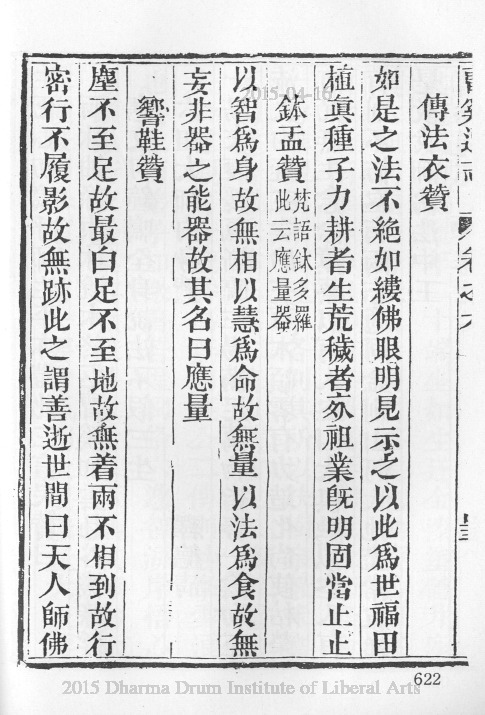 傳法衣贊
如是之法不絕如縷佛眼明見示之以此爲世福田
植眞種子力耕者生荒穢者亥祖業旣明固當止止
鉢盂贊梵語鉢多羅此云應量器
以智爲身故無相以慧爲命故無量以法爲食故無
妄非器之能器故其名曰應量
響鞋贊
塵不至足故最白足不至地故無着兩不相到故行
密行不履影故無跡此之謂善逝世間曰天人師佛
2015-04-16
622
2015 Dharma Drum Institute of Liberal Arts